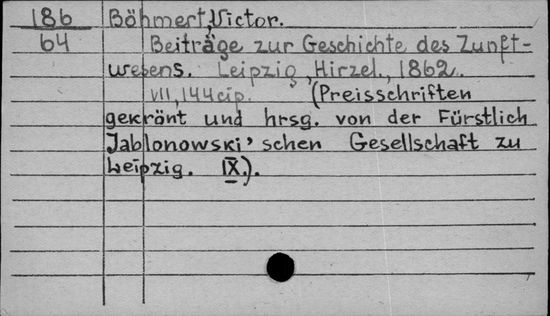 186 Böhmert, Victor.
64 Beiträge zur Geschichte des Zunft-
wesens. Leipzig, Hirzel., 1862.
VII, 144 cip. (Preisschriften
gekrönt und hrsg. von der Fürstlich
Jablonowski'schen Gesellschaft zu
Leipzig. IX.).